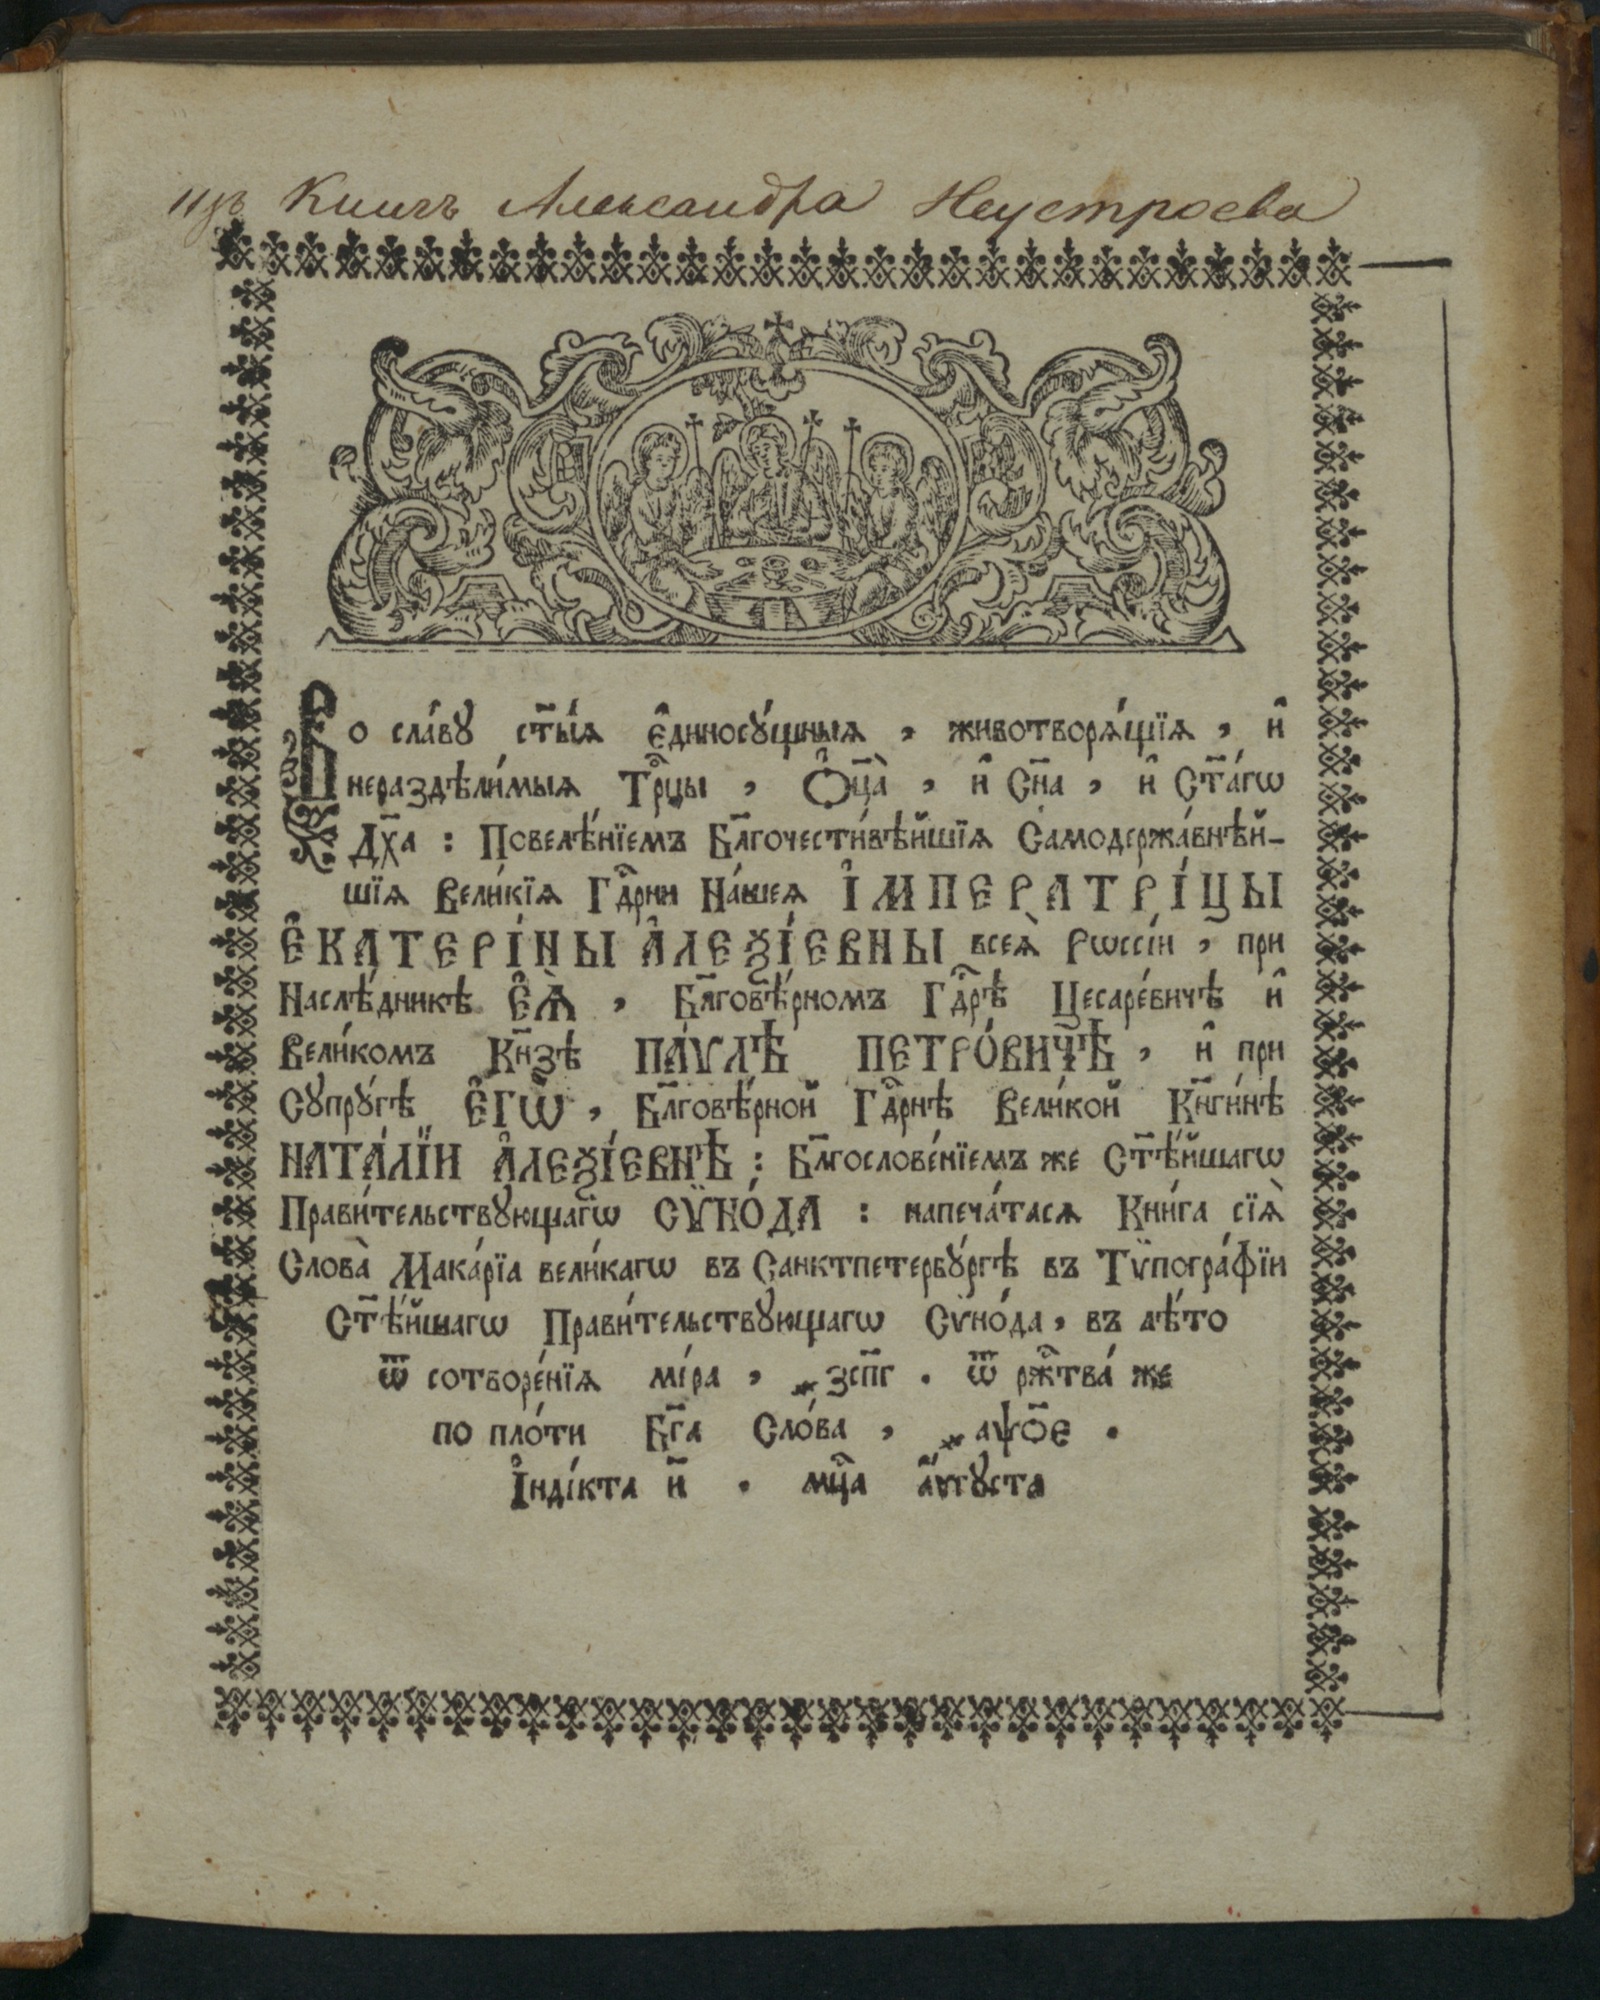 Изъ Книгъ Александра Неустроева
Во сла́ву ст҃ы́ѧ є҆диносу́щныѧ, животворѧ́щїѧ, и҆
нераздѣли́мыѧ Трⷪ҇цы, Ѻ҆ц҃а̀, и҆ Сн҃а, и҆ Ст҃а́гѡ
Дх҃а : Повелѣ́нїемъ Бл҃гочести́вѣйшїѧ Самодержа́внѣй-
шїѧ Вели́кїѧ Гдⷭ҇рни На́шеѧ І҆МПЕРАТРІ́ЦЫ
Є҆КАТЕРІ́НЫ А҆ЛЕѮІ́ЕВНЫ всеѧ̀ Рѡссі́и, при
Наслѣ́дникѣ Є҆Ѧ̀, Бл҃говѣ́рномъ Гдⷭ҇рѣ Цесаре́вичѣ и҆
Вели́комъ Кн҃зѣ ПА́ѴЛѢ ПЕТРО́ВИЧѢ, и҆ при
Супру́гѣ Є҆ГѠ̀, Бл҃говѣ́рной Гдⷭ҇рнѣ Вели́кой Кн҃ги́нѣ
НАТА́ЛЇИ А҆ЛЕѮІ́ЕВНѢ : Бл҃гослове́нїемъ же Ст҃ѣ́йшагѡ
Прави́тельствующагѡ СѴ̈НО́ДА : напеча́тасѧ Кни́га сїѧ̀
Слова̀ Мака́рїа вели́кагѡ въ Санктпетербу́ргѣ въ Тѷпогра́фїи
Ст҃ѣ́йшагѡ Прави́тельствующагѡ Сѷно́да, въ лѣ́то
ѿ сотворе́нїѧ мі́ра, ҂зсп҃г. ѿ ржⷭ҇тва́ же
по пло́ти Бг҃а Сло́ва, ҂аѱо҃е.
І҆нді́кта и҃. мцⷭ҇а а҆́ѵгуста